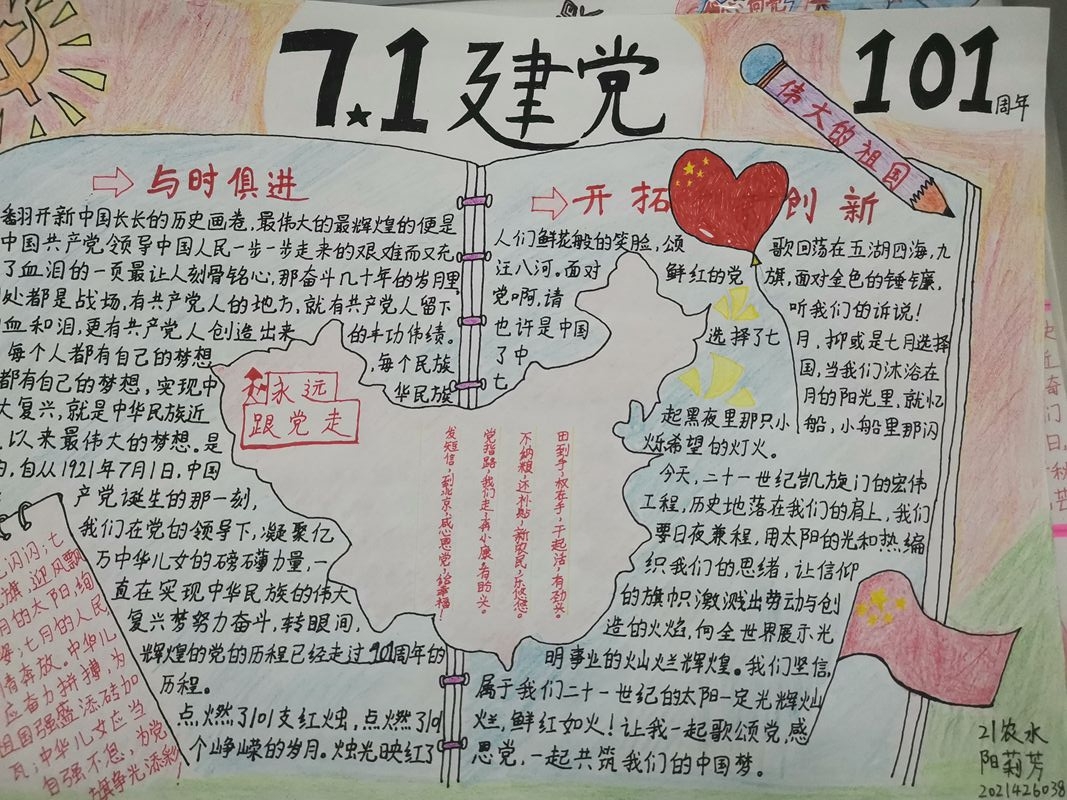 7.1建党
101周年
伟大的祖国
与时俱进
翻开新中国长长的历史画卷,最伟大的最辉煌的便是
中国共产党领导中国人民一步一步走来的艰难而又充
了血泪的一页最让人刻骨铭心,那奋斗几十年的岁月里
处都是战场,有共产党人的地方,就有共产党人留下
血和泪,更有共产党人创造出来的丰功伟绩。
每个人都有自己的梦想,每个民族
都有自己的梦想,实现中华民族
大复兴,就是中华民族近
以来最伟大的梦想。是
的,自从1921年7月1日,中国
产党诞生的那一刻,
我们在党的领导下,凝聚亿
万中华儿女的磅礴力量,一
直在实现中华民族的伟大
复兴梦努力奋斗,转眼间,
辉煌的党的历程已经走过101周年的
历程。
点燃了101支红烛,点燃了101
个峥嵘的岁月。烛光映红了
开拓创新
人们鲜花般的笑脸,颂歌回荡在五湖四海,九
江八河。面对鲜红的党旗,面对金色的锤镰,
党啊,请听我们的诉说!
也许是中国选择了七月,抑或是七月选择
了中国,当我们沐浴在
七月的阳光里,就忆
起黑夜里那只小船,小船里那闪
烁希望的灯火。
今天,二十一世纪凯旋门的宏伟
工程,历史地落在我们的肩上,我们
要日夜兼程,用太阳的光和热编
织我们的思绪,让信仰
的旗帜激溅出劳动与创
造的火焰,向全世界展示光
明事业的灿烂辉煌。我们坚信,
属于我们二十一世纪的太阳一定光辉灿
烂,鲜红如火!让我一起歌颂党,感
恩党,一起共筑我们的中国梦。
永远
跟党走
田到手,权在手,干起活,有劲头。
不纳粮,还补贴,新农民,乐悠悠。
党指路,我们走,再小康,有盼头。
发短信,到北京,感恩党,给幸福!
闪闪;七
旗,迎风飘
月的太阳,绚
七月的人民
情奔放。中华儿
应奋力拼搏,为
祖国强盛添砖加
瓦;中华儿女应当
自强不息,为党
旗争光添彩
21农水
阳莉芳
2021426038